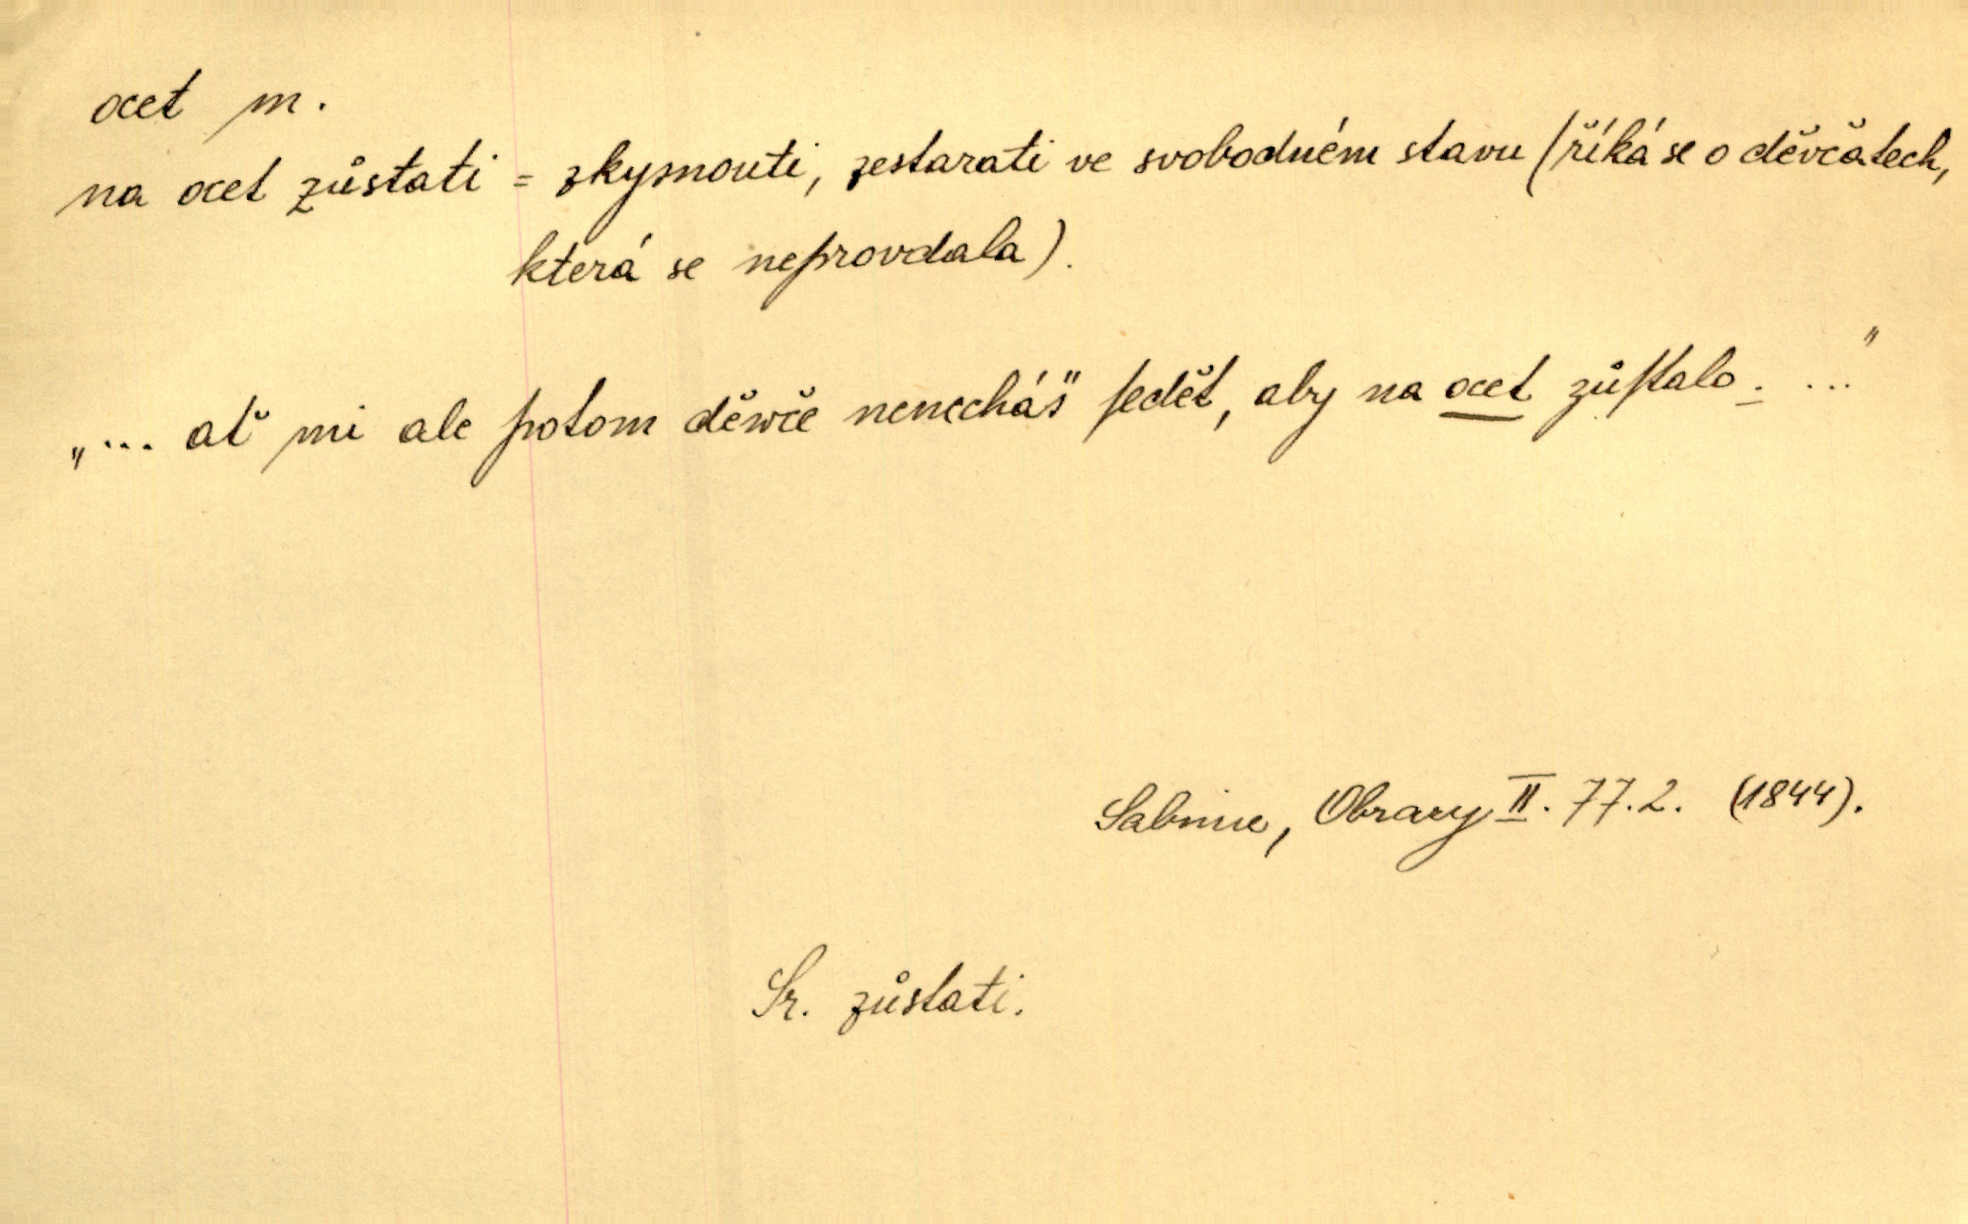 ocet m.
na ocet zůstati = zkysnouti, zestarati ve svobodném stavu (říká se o děvčatech,
která se neprovdala).
„... ať mi ale potom děwče nenecháš" ſedět, aby na ocet zůſtalo. ..."
Sabina, Obrazy II. 77.2. (1844).
Sr. zůstati.